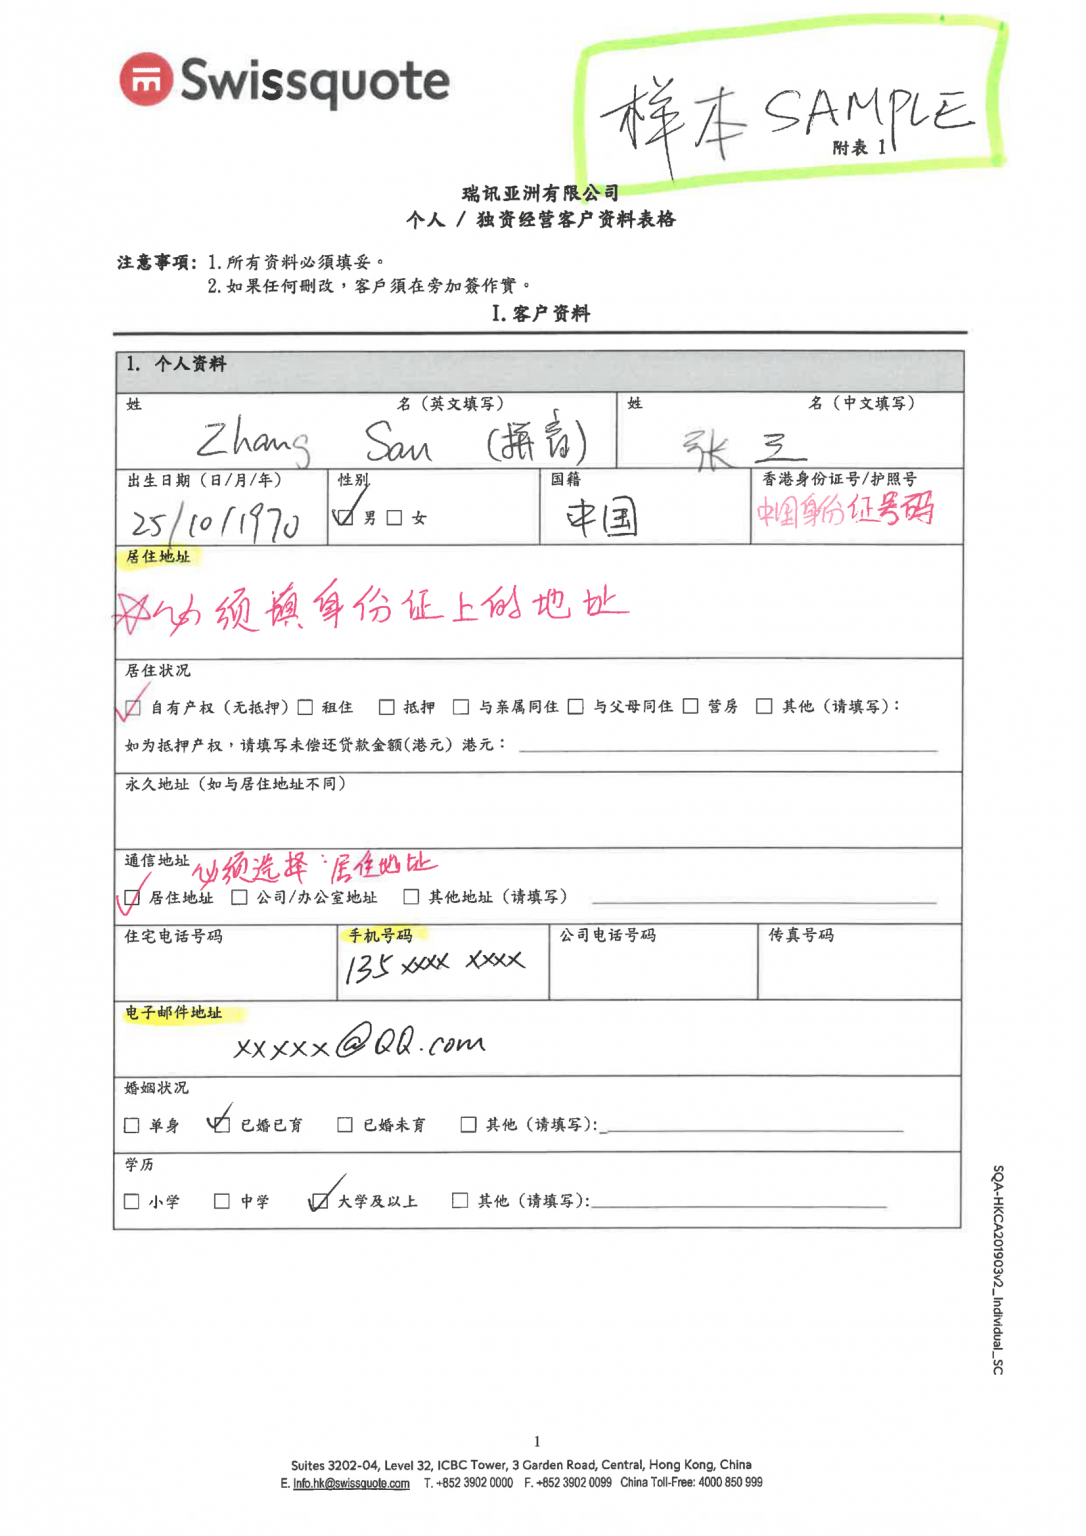 Swissquote
样本 SAMPLE
附表 1
瑞讯亚洲有限公司
个人 / 独资经营客户资料表格
注意事項: 1.所有资料必須填妥。
2.如果任何刪改，客戶須在旁加簽作實。
I.客户资料
1. 个人资料
姓 名（英文填写） 姓 名（中文填写）
Zhang San (拼音) 张 三
出生日期（日/月/年） 性别 国籍 香港身份证号/护照号
25/10/1970 ☑ 男 ☐ 女 中国 中国身份证号码
居住地址
☆必须填身份证上的地址
居住状况
☑ 自有产权（无抵押） ☐ 租住 ☐ 抵押 ☐ 与亲属同住 ☐ 与父母同住 ☐ 营房 ☐ 其他（请填写）:
如为抵押产权，请填写未偿还贷款金额(港元) 港元:
永久地址（如与居住地址不同）
通信地址 必须选择:居住地址
☑ 居住地址 ☐ 公司/办公室地址 ☐ 其他地址（请填写）
住宅电话号码 手机号码 公司电话号码 传真号码
135 xxxx xxxx
电子邮件地址
xxxxx@QQ.com
婚姻状况
☐ 单身 ☑ 已婚已育 ☐ 已婚未育 ☐ 其他（请填写）:
学历
☐ 小学 ☐ 中学 ☑ 大学及以上 ☐ 其他（请填写）:
SQA-HKCA201903v2_Individual_SC
1
Suites 3202-04, Level 32, ICBC Tower, 3 Garden Road, Central, Hong Kong, China
E. Info.hk@swissquote.com T. +852 3902 0000 F. +852 3902 0099 China Toll-Free: 4000 850 999